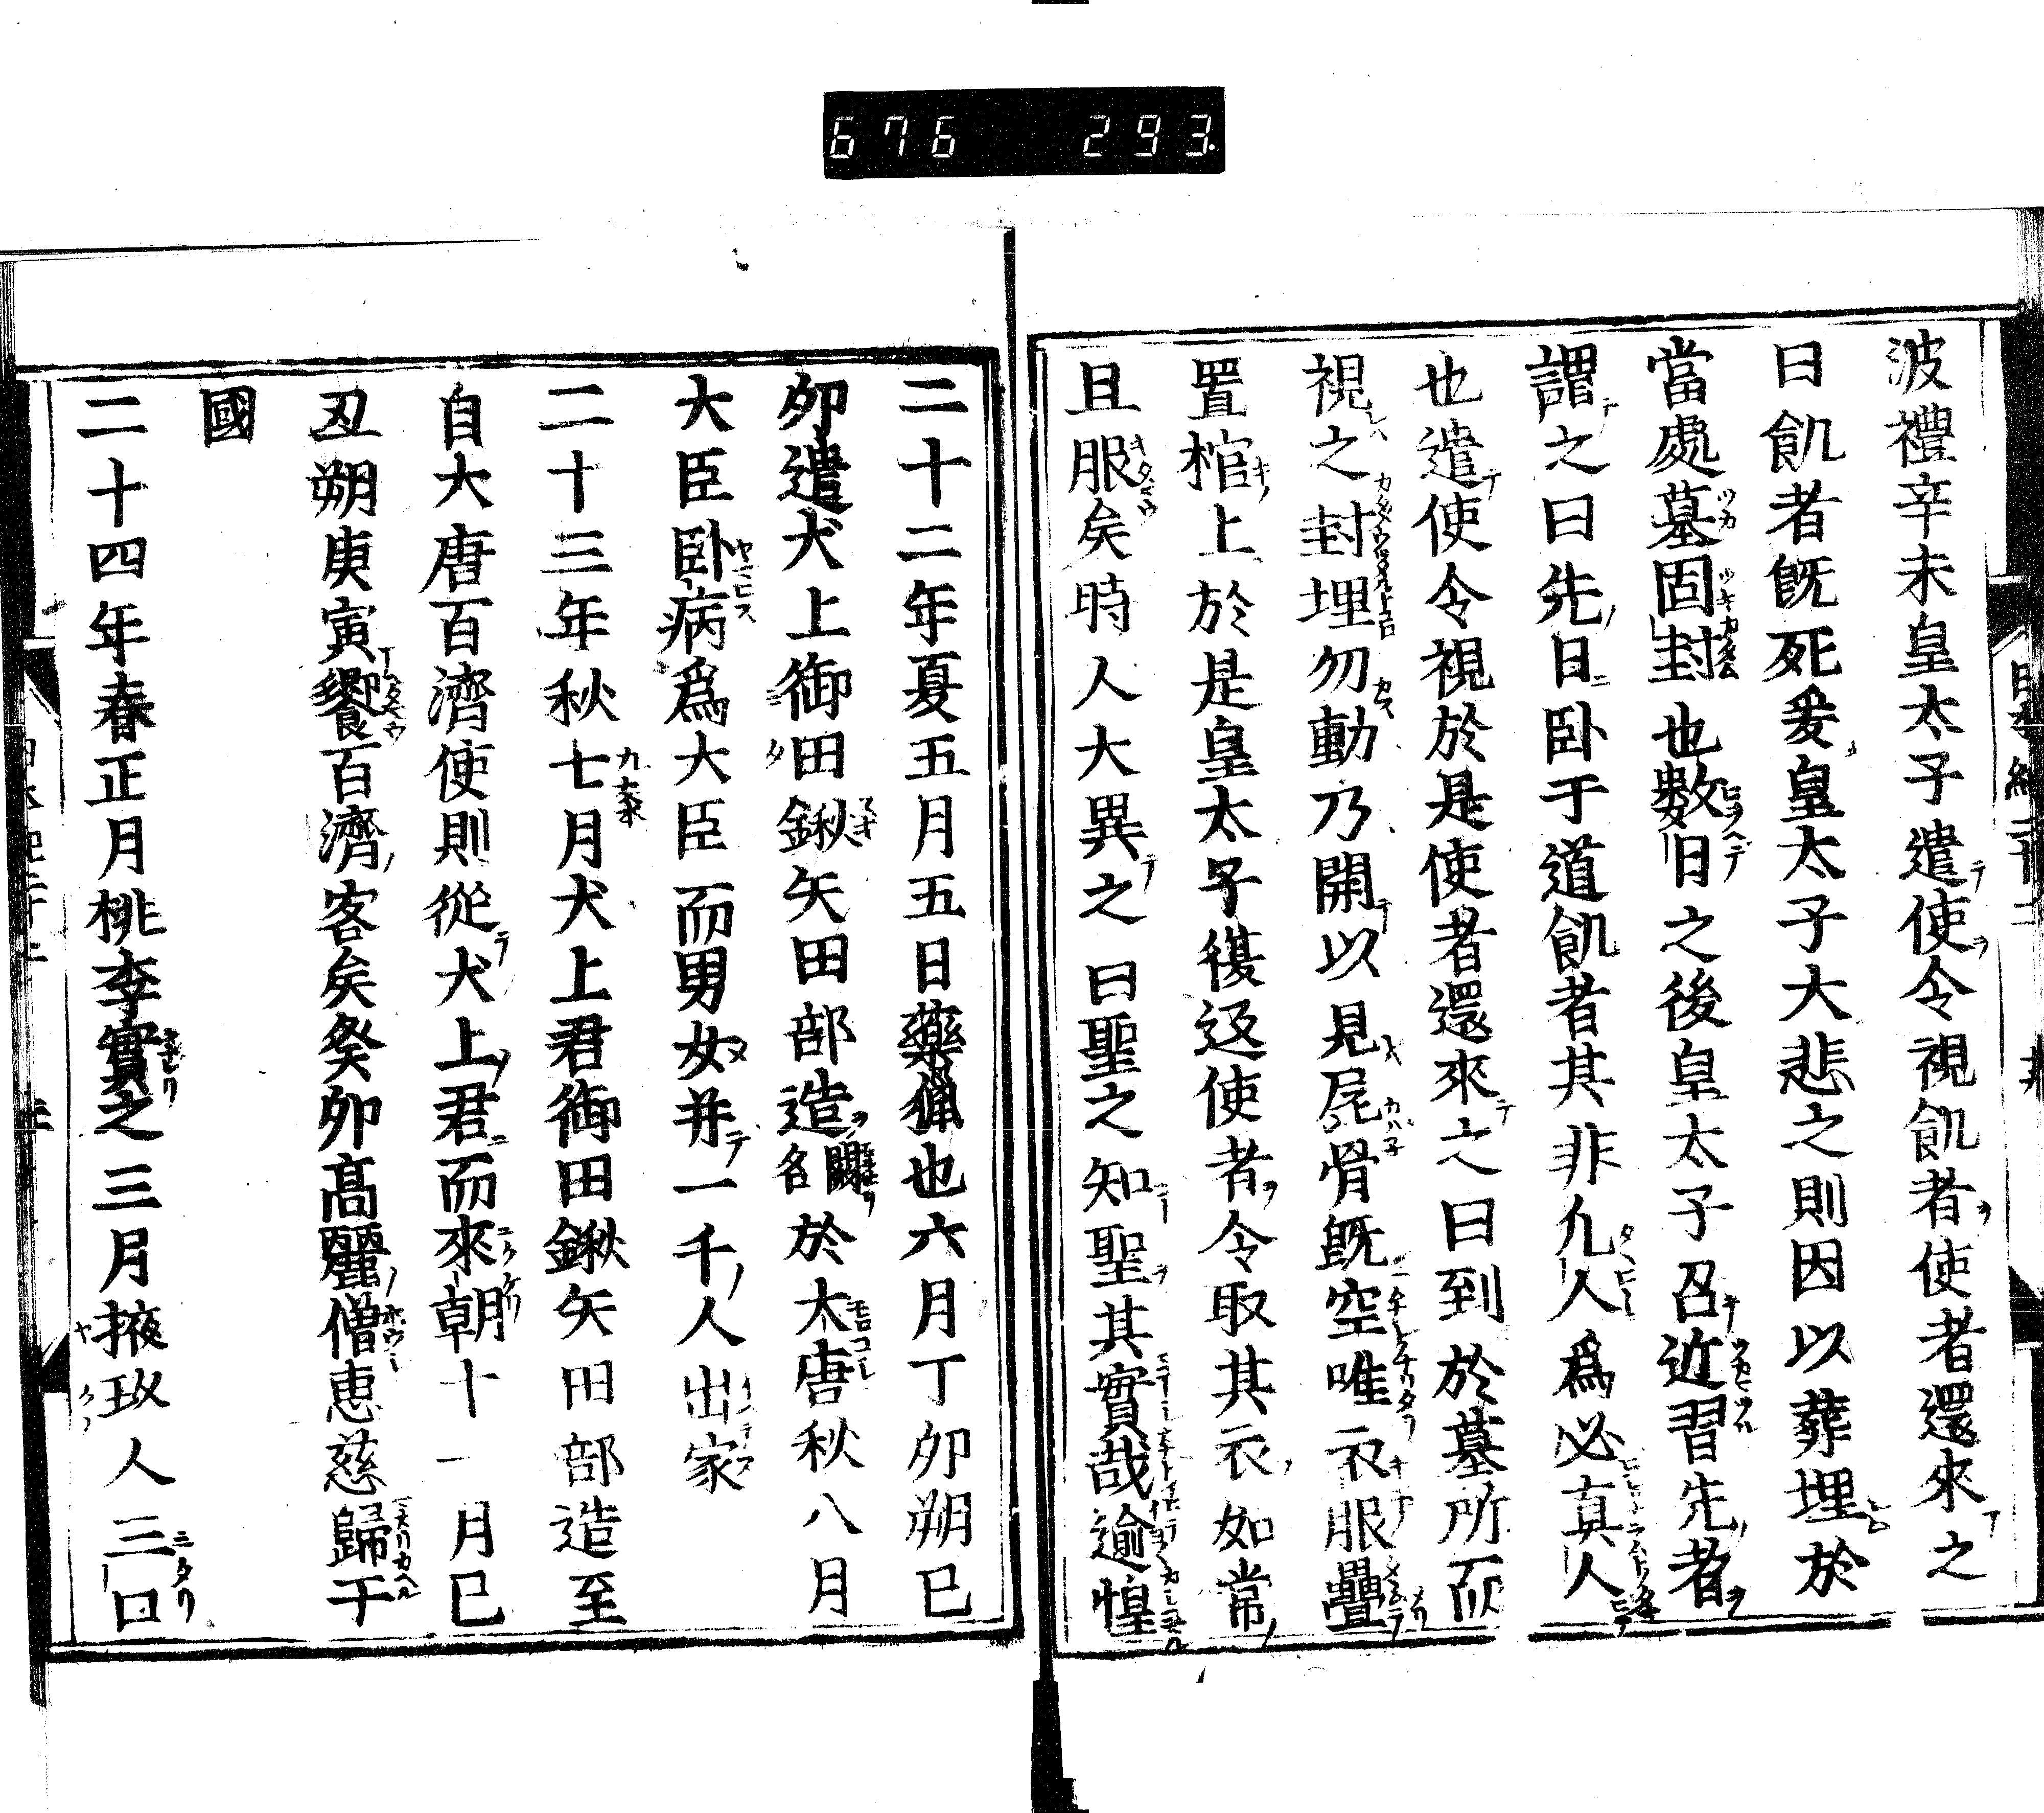 676 293
波禮辛未皇太子遣使令視飢者使者還來之
曰飢者旣死爰皇太子大悲之則因以葬埋於
當處墓固封也數日之後皇太子召近習先者
謂之曰先日臥于道飢者其非凡人爲必真人
也遣使令視於是使者還來之曰到於墓所而
視之封埋勿動乃開以見屍骨旣空唯衣服疊
置棺上於是皇太子復返使者令取其衣如常
且服矣時人大異之曰聖之知聖其實哉逾惶
二十二年夏五月五日藥獵也六月丁卯朔己
卯遣犬上御田鍬矢田部造闕名於大唐秋八月
大臣臥病爲大臣而男女并一千人出家
二十三年秋七月犬上君御田鍬矢田部造至
自大唐百濟使則從犬上君而來朝十一月己
丑朔庚寅饗百濟客矣癸卯髙麗僧恵慈歸于
國
二十四年春正月桃李實之三月掖玖人三口